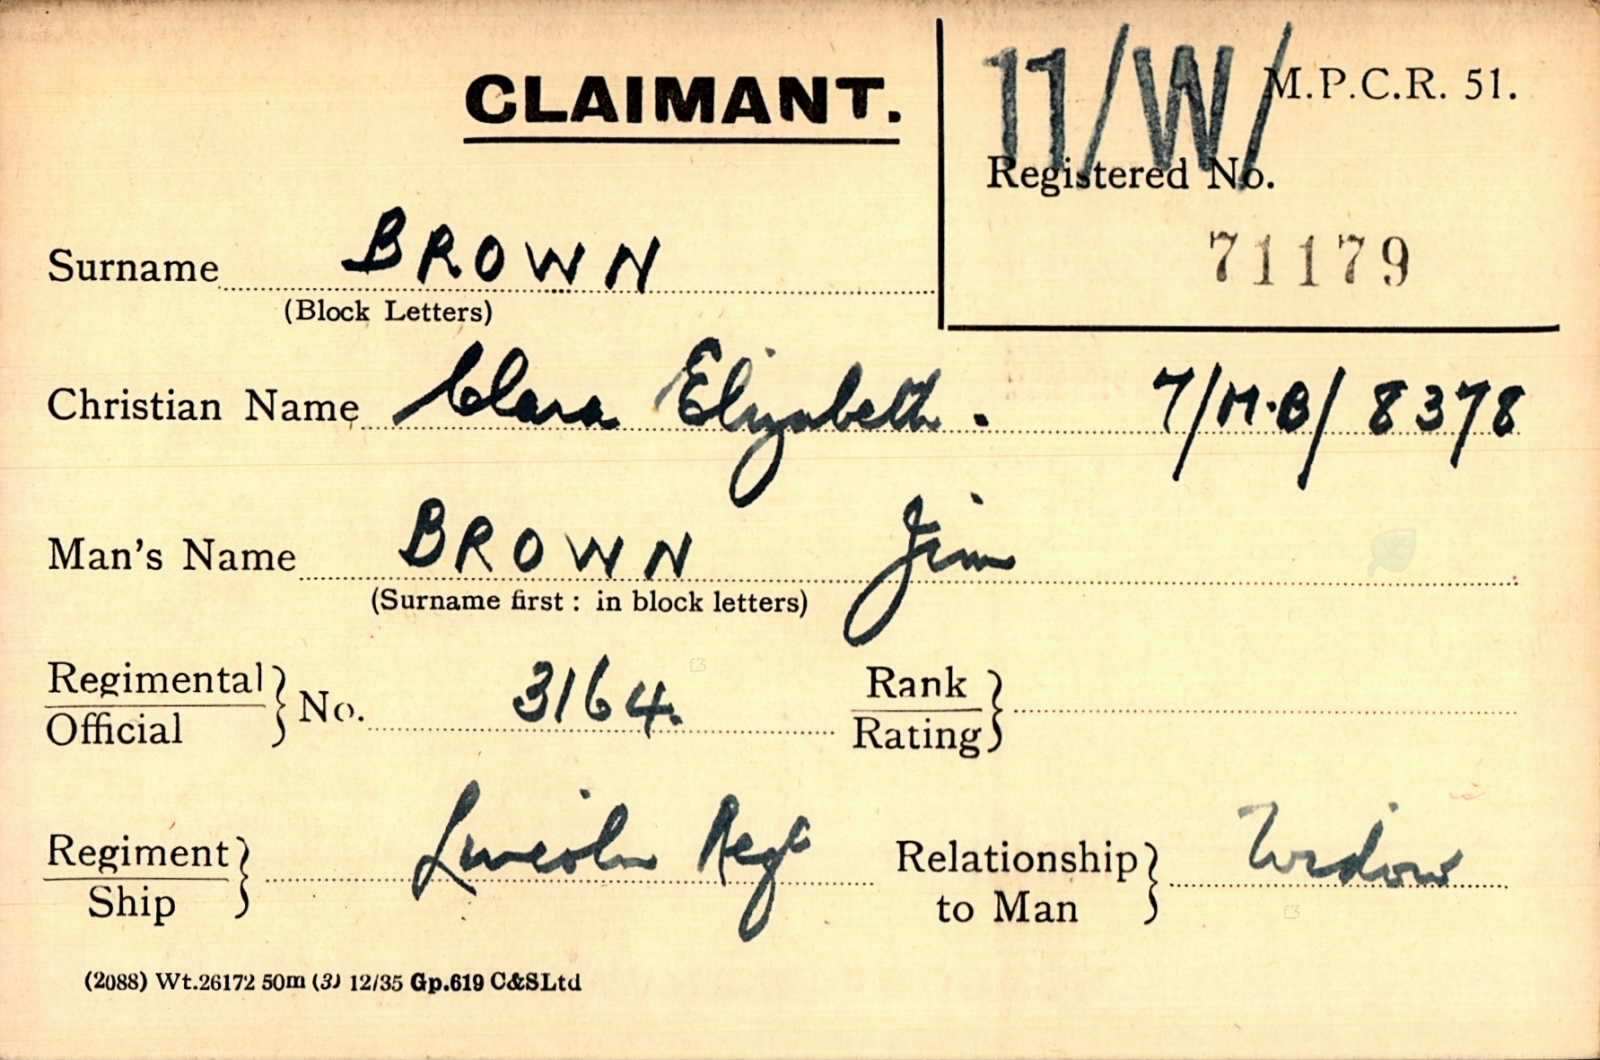 CLAIMANT.
11/W/ M.P.C.R. 51.
Registered No.
71179
Surname BROWN
(Block Letters)
Christian Name Clara Elizabeth. 7/M.B/8378
Man's Name BROWN Jim
(Surname first: in block letters)
Regimental
Official } No. 3164.
Rank
Rating }
Regiment
Ship } Lincoln Regt
Relationship
to Man } Widow
(2088) Wt.26172 50m (3) 12/35 Gp.619 C&SLtd